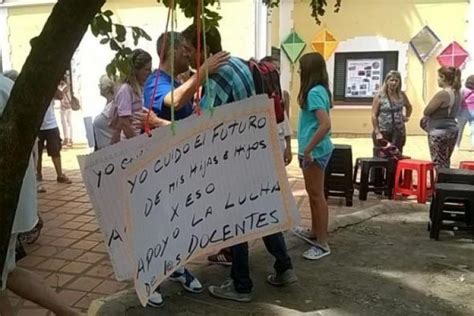 YO CUIDO EL FUTURO
DE MIS HIJAS E HIJOS
X ESO
APOYO LA LUCHA
DE LOS DOCENTES
YO